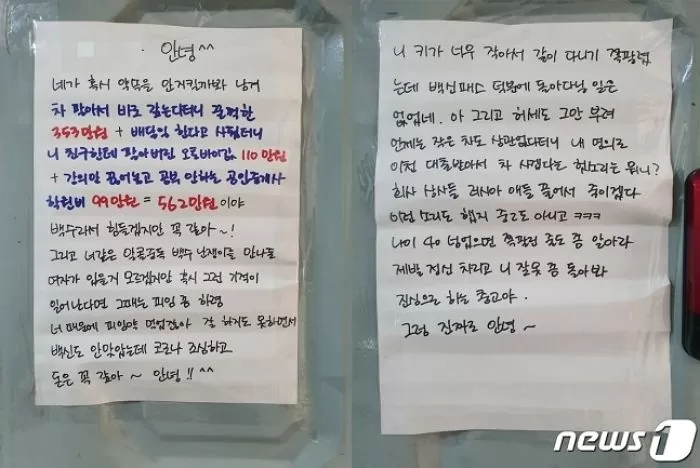 안녕^^
네가 혹시 약속을 안 지킬까봐 남겨
차 팔아서 바로 갚는다더니 꿀꺽한
353만원 + 배달일 한다고 사줬더니
니 친구한테 팔아버린 오토바이값 110만원
+ 강의만 끊어놓고 공부 안하는 공인중개사
학원비 99만원 = 562만원이야
백수라서 힘들겠지만 꼭 갚아~!
그리고 너같은 알콜중독 백수 난쟁이를 만나줄
여자가 있을지 모르겠지만 혹시 그런 기적이
일어난다면 그때는 피임 좀 하렴
너 때문에 피임약 먹었잖아 잘 하지도 못하면서
백신도 안맞았는데 코로나 조심하고
돈은 꼭 갚아~ 안녕!! ^^
니 키가 너무 작아서 같이 다니기 쪽팔렸
는데 백신패스 덕분에 돌아다닐 일은
없었네. 아 그리고 허세도 그만 부려
언제는 작은 차도 상관없다더니 내 명의로
이천 대출받아서 차 사겠다는 헛소리는 뭐니?
회사 상사들 러시아 애들 풀어서 죽이겠다
이런 또라도 했지 중2도 아니고 ㅋㅋㅋ
나이 40 넘었으면 쪽팔린 줄도 좀 알아라
제발 정신 차리고 니 잘못 좀 돌아봐
진심으로 하는 충고야.
그럼 진짜로 안녕~
news1